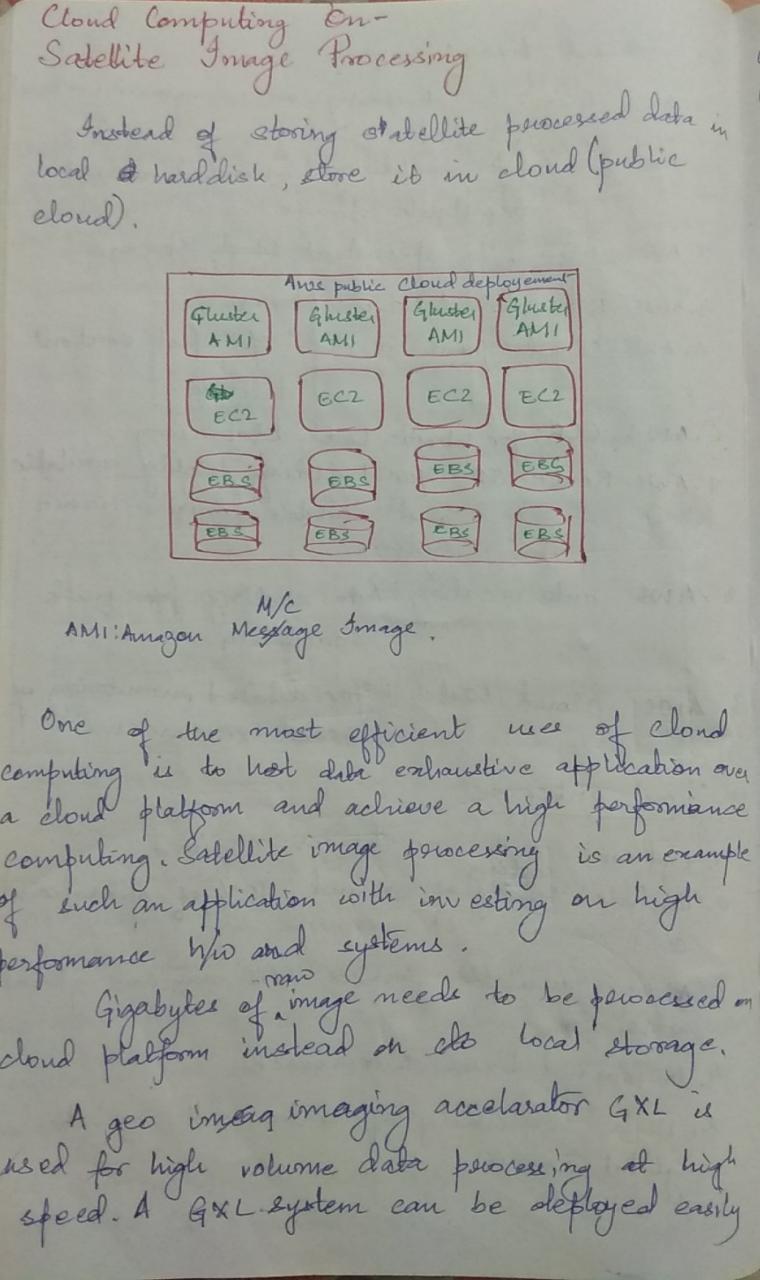 Cloud Computing On-
Satellite Image Processing
Instead of storing satellite processed data in
local harddisk, store it in cloud (public
cloud).
Aws public Cloud deployement
Gluster AMI Gluster AMI Gluster AMI Gluster AMI
EC2 EC2 EC2 EC2
EBS EBS EBS EBS
EBS EBS EBS EBS
M/C
AMI: Amazon Message Image.
One of the most efficient uses of cloud
computing is to host data exhaustive application over
a cloud platform and achieve a high performance
computing. Satellite image processing is an example
of such an application with investing on high
performance h/w and systems.
raw
Gigabytes of image needs to be processed on
cloud platform instead on local storage.
A geo imaging accelarator GXL is
used for high volume data processing at high
speed. A GXL system can be deployed easily